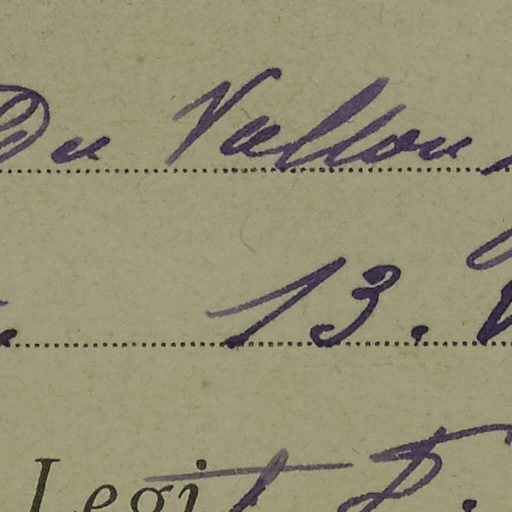 Du Vallon,
13. V
Legit